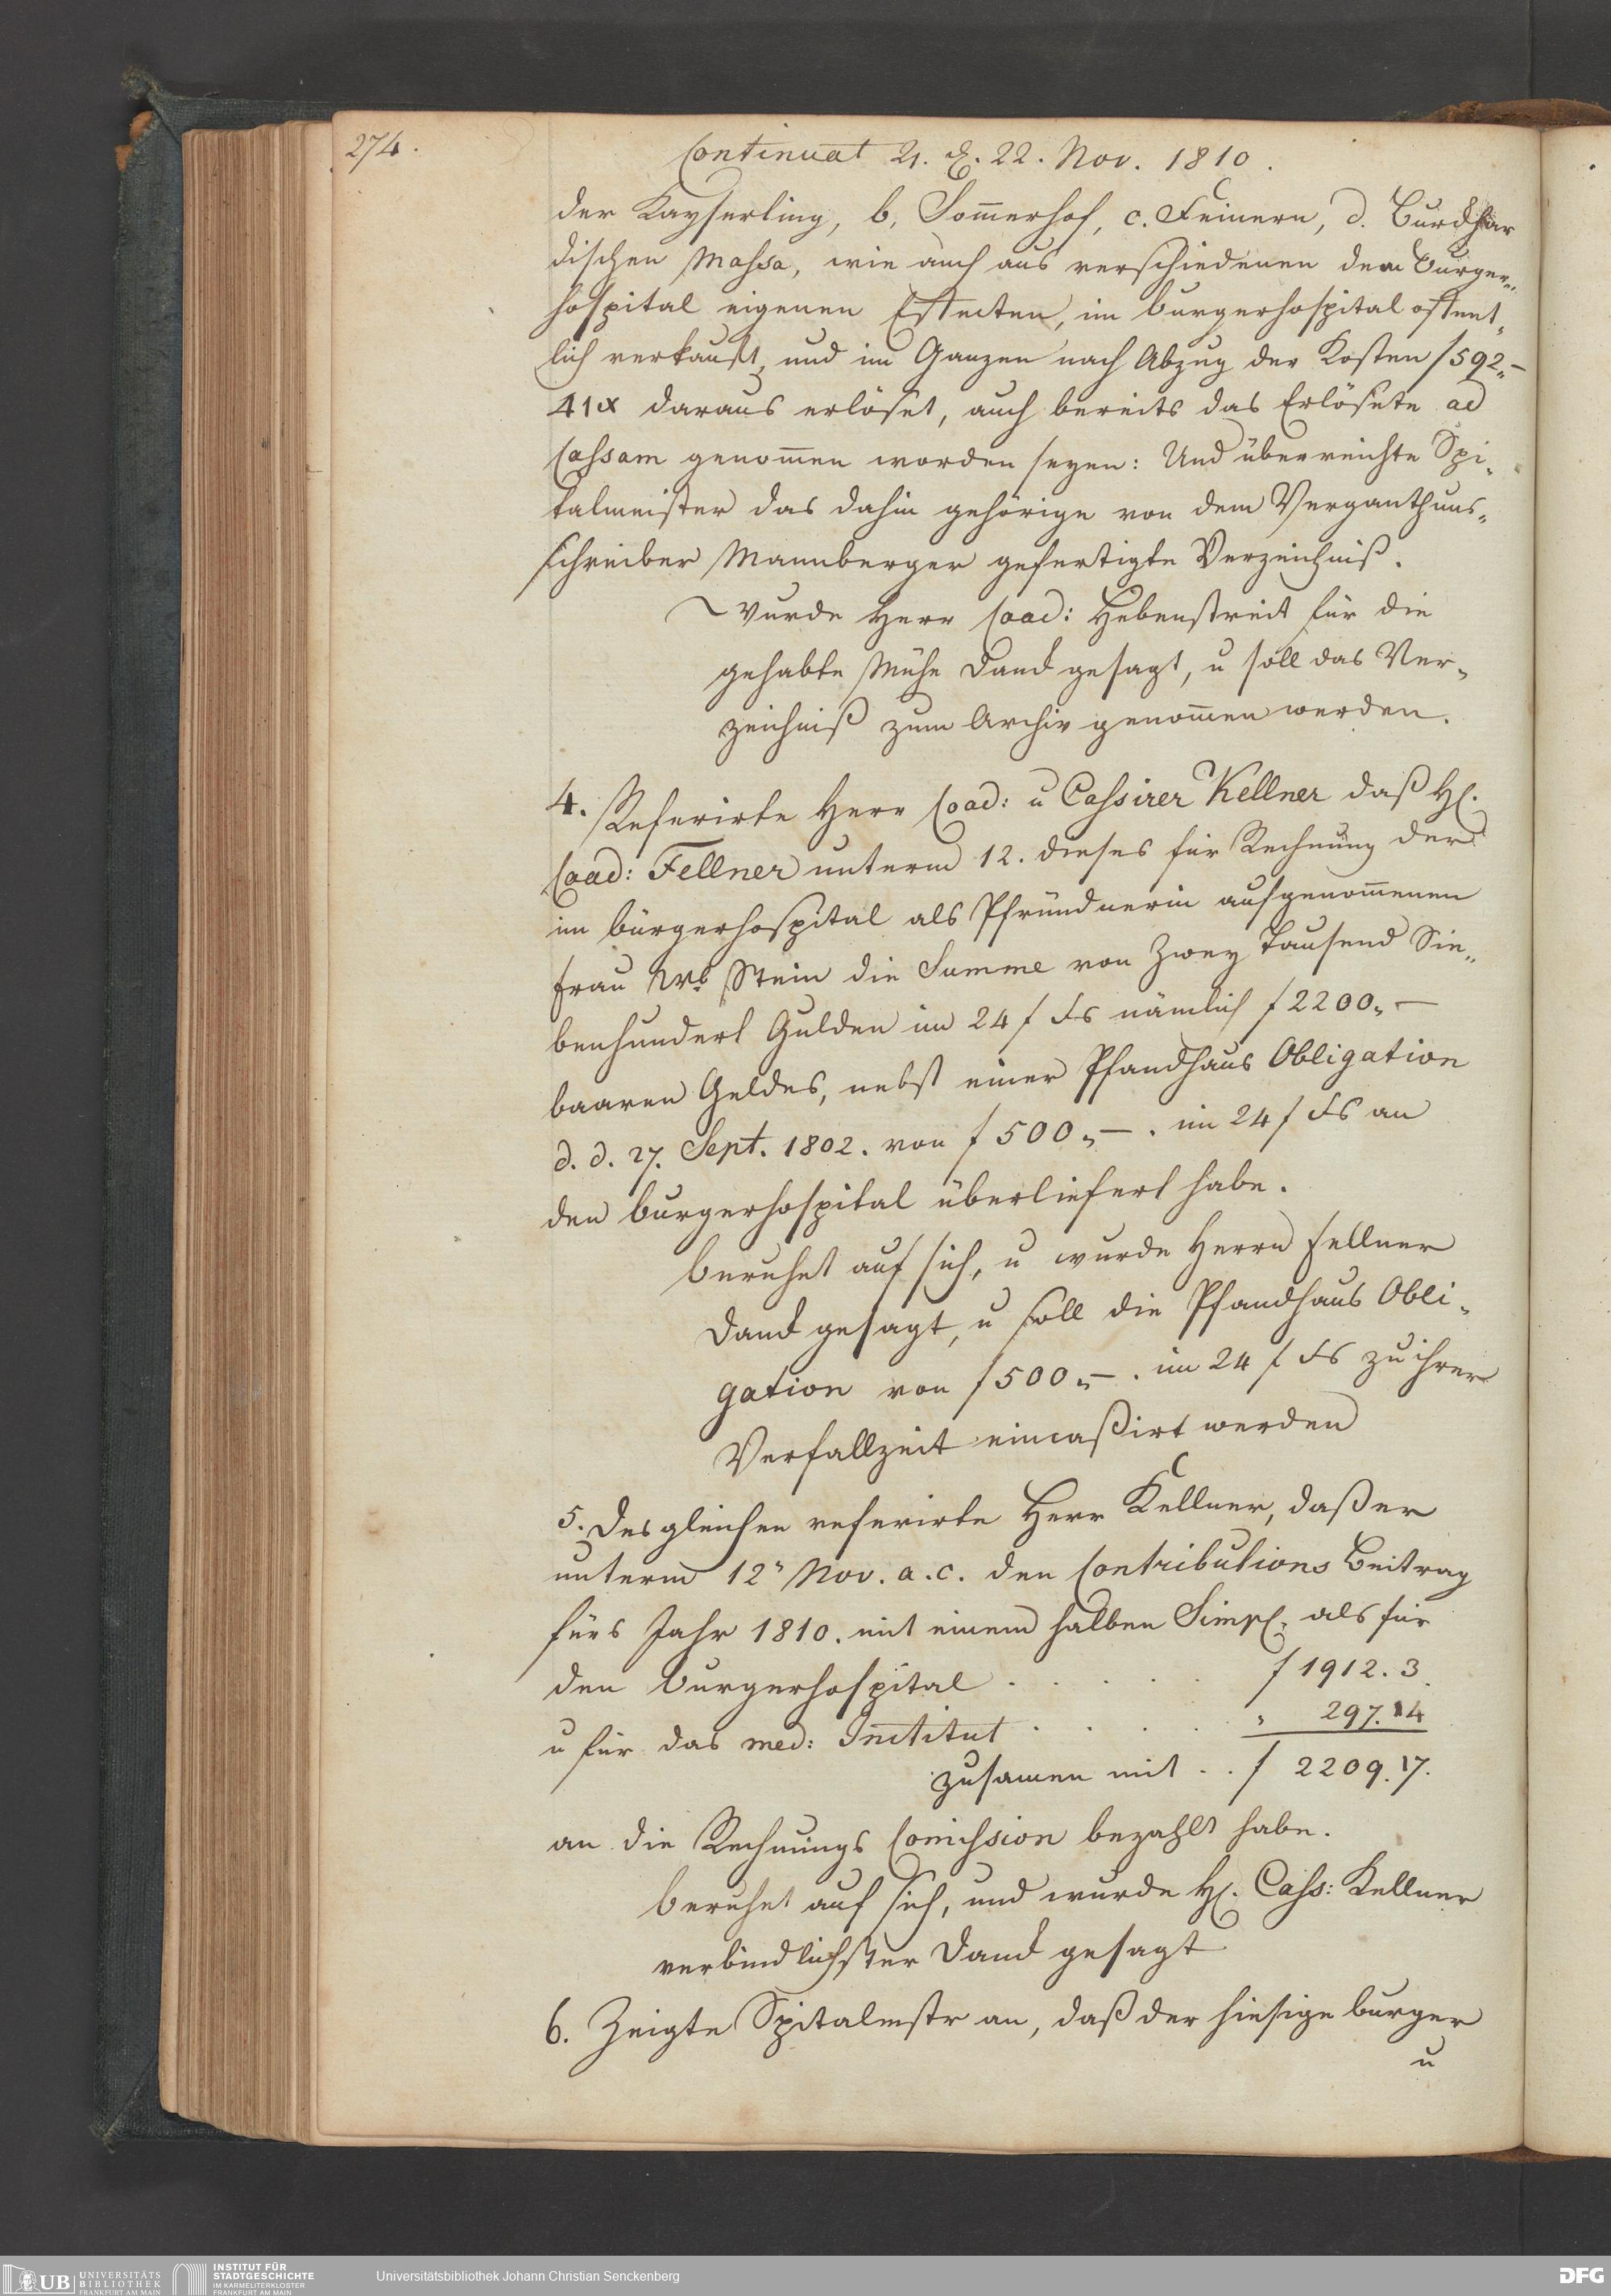 274.
Continuat 21. d. 22. Nov. 1810.
der Kayserling, b, Som̄erhof, c. Feinern, d. Burckhar
dischen Massa, wie auch aus verschiedenen dem Burger„
hospital eigenen Effecten, im burgerhospital offent„
lich verkauft, und im Ganzen nach Abzug der Kosten f 592„—
41x daraus erlöset, auch bereits das Erlösete ad
Cassam genom̄en worden seyen: Und überreichte Spi„
talmeister das dahin gehörige von dem Verganthuns„
schreiber Mannberger gefertigte Verzeichniß.
Wurde Herr Coad: Hebenstreit für die
gehabte Mühe Danck gesagt, u soll das Ver„
zeichniß zum Archiv genom̄en werden.
4. Referirte Herr Coad: u Cassirer Kellner daß H.
Coad: Fellner unterm 12. dieses für Rechnung der
im bürgerhospital als Pfründnerin aufgenom̄enen
Frau Stein die Summe von Zwey Tausend Sie„
benhundert Gulden im 24 f Fs nämlich f 2200„—
baaren Geldes, nebst einer Pfandhaus Obligation
d. d. 27. Sept. 1802. von f 500„—. im 24 f Fs an
den burgerhospital überliefert habe.
beruhet auf sich, u wurde Herrn Fellner
Danck gesagt, u soll die Pfandhaus Obli„
gation von f 500„—. im 24 f Fs zu ihrer
Verfallzeit eincaßirt werden
5. Desgleichen referirte Herr Kellner, daß er
unterm 12n Nov. a. c. den Contributions Beitrag
fürs Jahr 1810. mit einem halben Simpl. als für
den burgerhospital . . . . . f 1912. 3.
u für das med: Institut . . . . „ 297. 14
zusamen mit . . f 2209. 17.
an die Rechnungs Com̄ission bezahlt habe.
beruhet auf sich, und wurde H. Cass: Kellner
verbindlichster Danck gesagt
6. Zeigte Spitalmstr an, daß der hiesige burger
u
UB UNIVERSITÄTS
BIBLIOTHEK
FRANKFURT AM MAIN
INSTITUT FÜR
STADTGESCHICHTE
IM KARMELITERKLOSTER
FRANKFURT AM MAIN
Universitätsbibliothek Johann Christian Senckenberg
DFG